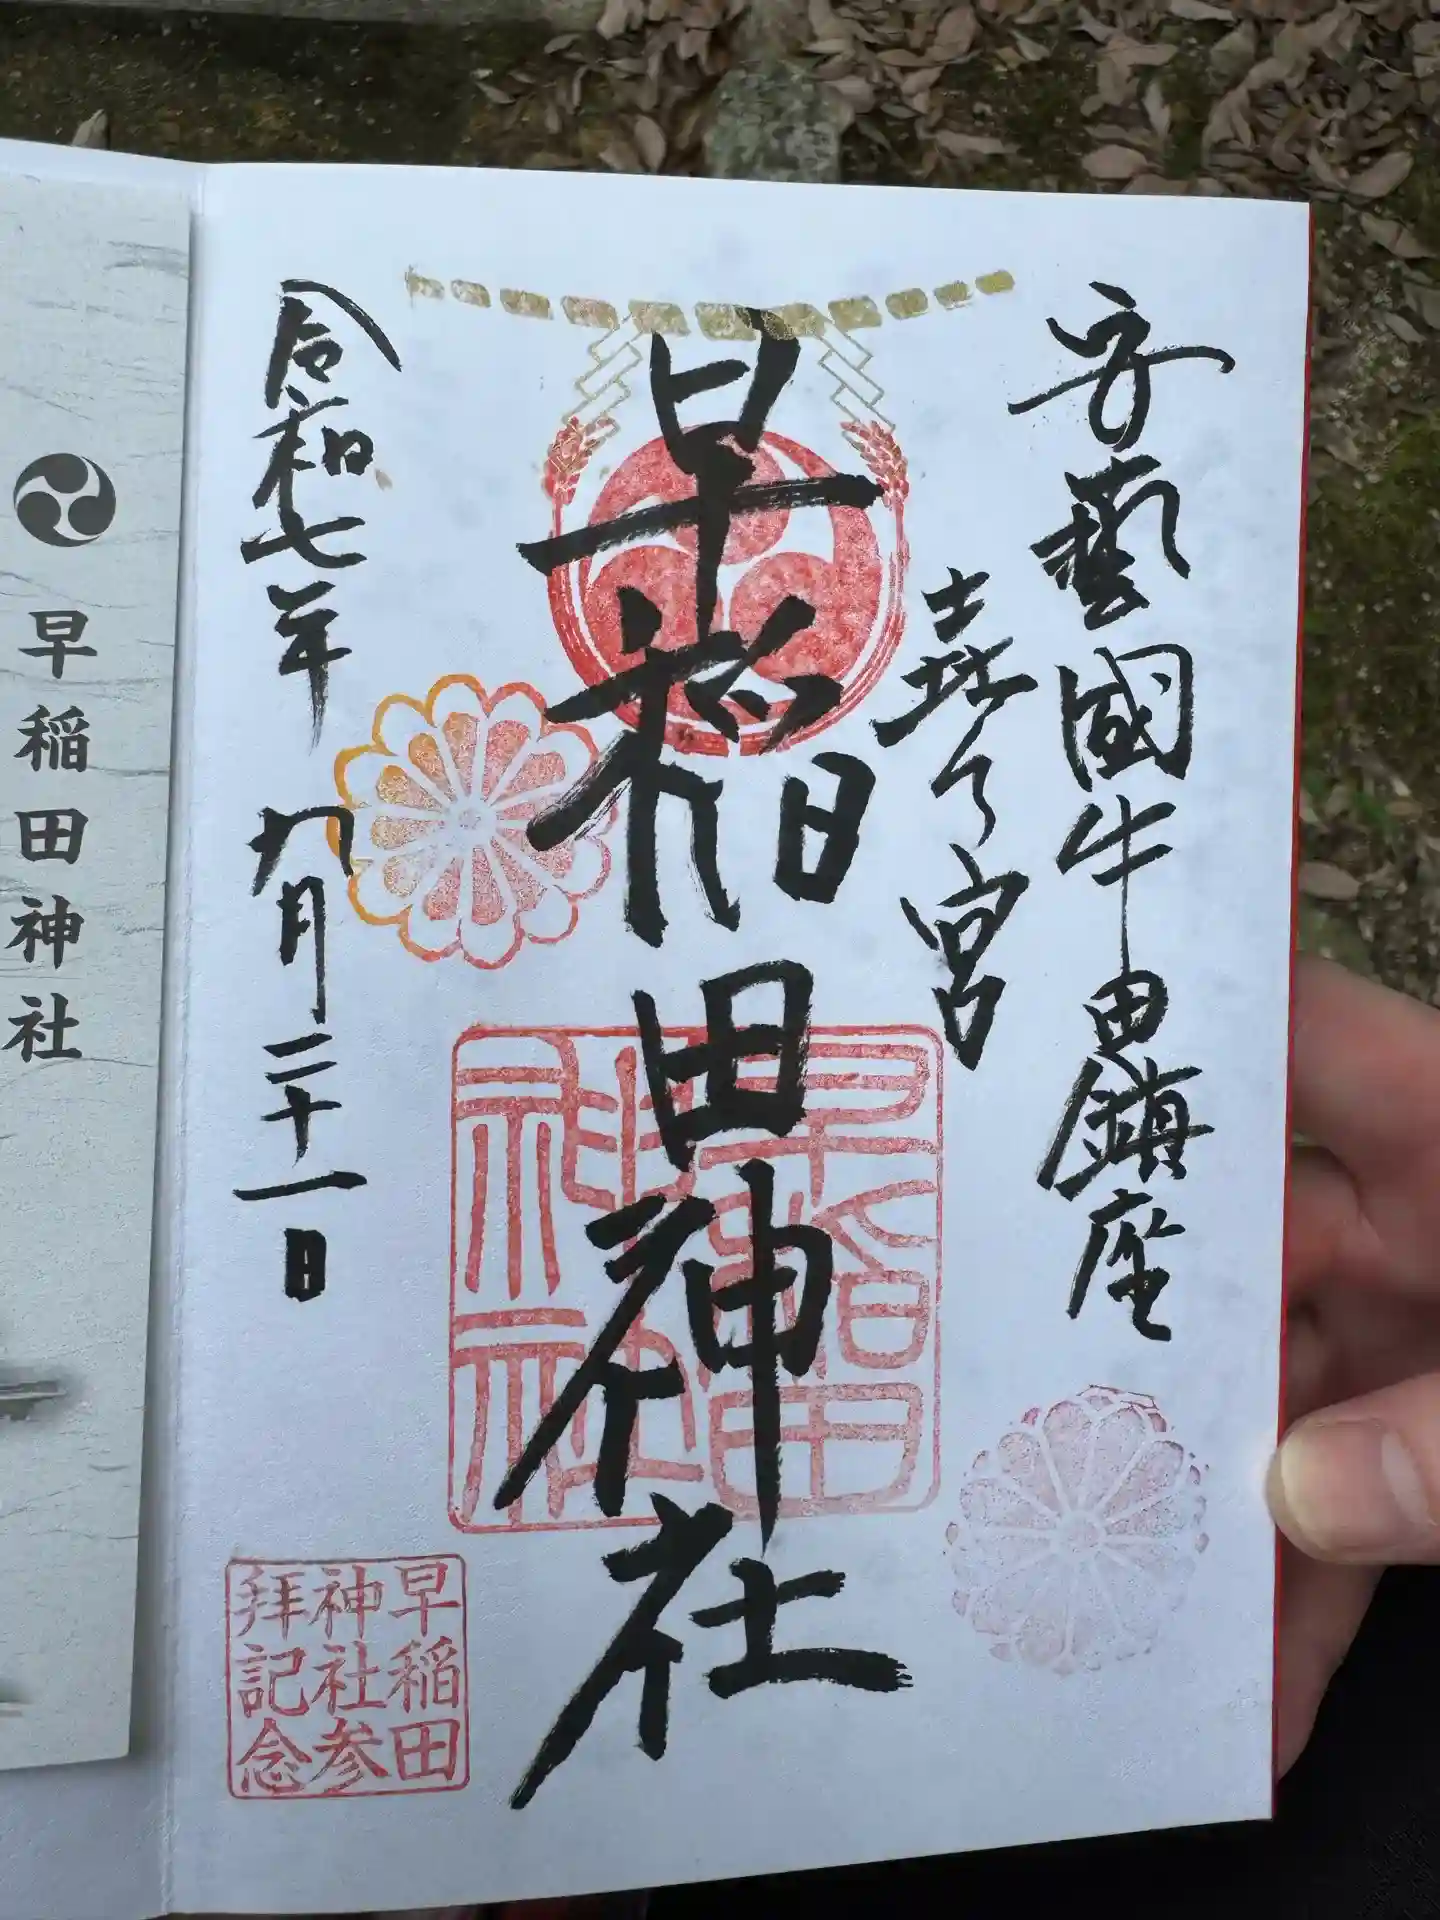 安藝國牛田鎮座
早稲田神社
令和七年九月二十一日
早稲田神社
早稲田
神社参
拝記念
早稲田神社